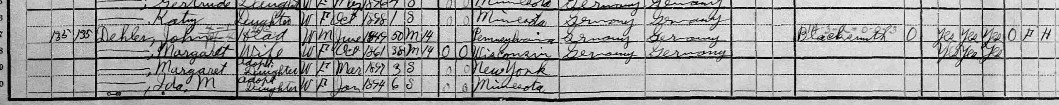 Gertrude Daughter W F May 7 S Minnesota Germany Germany
Katy Daughter W F Oct 1898 1 S Minnesota Germany Germany
135 135 Dehler, John Head W M June 1849 50 M 14 Pennsylvania Germany Germany Blacksmith 0 Yes Yes Yes O F H
—, Margaret Wife W F Oct 1861 38 M 14 0 0 Wisconsin Germany Germany Yes Yes Yes
—, Margaret Adopt. Daughter W F Mar 1897 3 S 0 0 New York
—, Ida, M Adopt. Daughter W F Jan 1894 6 S 0 0 Minnesota